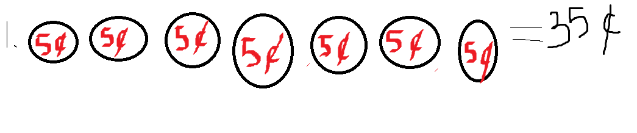 1. 5¢ 5¢ 5¢ 5¢ 5¢ 5¢ 5¢ = 35 ¢